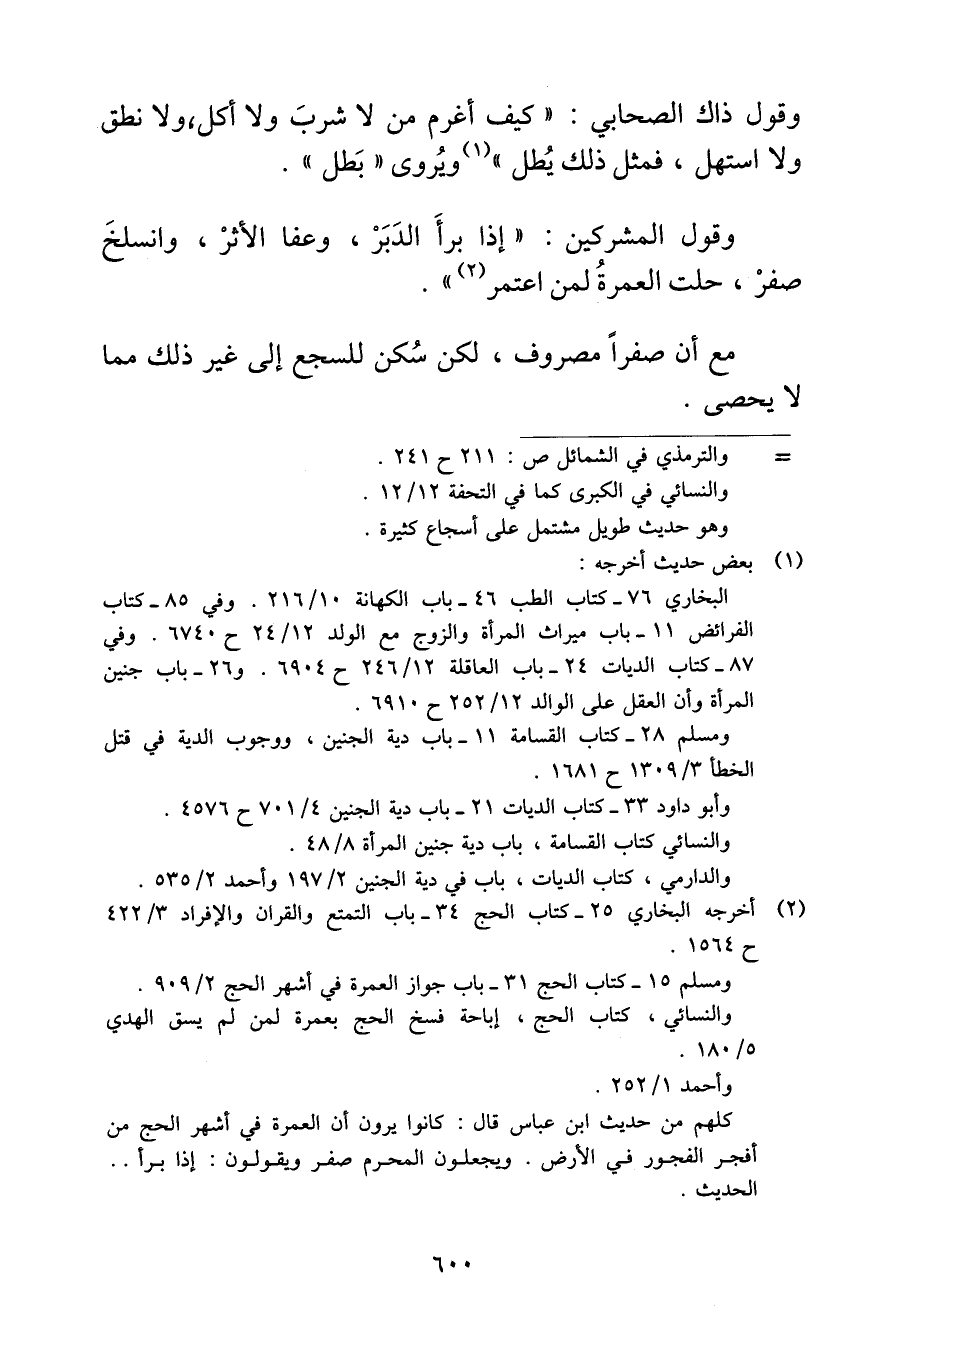 وقول ذاك الصحابي : « كيف أغرم من لا شربَ ولا أكل،ولا نطق
ولا استهل ، فمثل ذلك يُطل »(١)ويُروى « بَطل » .
وقول المشركين : « إذا برأَ الدَبَرْ ، وعفا الأثرْ ، وانسلخَ
صفرْ ، حلت العمرةُ لمن اعتمر(٢)» .
مع أن صفراً مصروف ، لكن سُكن للسجع إلى غير ذلك مما
لا يحصى .
= والترمذي في الشمائل ص : ٢١١ ح ٢٤١ .
والنسائي في الكبرى كما في التحفة ١٢/١٢ .
وهو حديث طويل مشتمل على أسجاع كثيرة .
(١) بعض حديث أخرجه :
البخاري ٧٦ ـ كتاب الطب ٤٦ ـ باب الكهانة ٢١٦/١٠ . وفي ٨٥ ـ كتاب
الفرائض ١١ ـ باب ميراث المرأة والزوج مع الولد ٢٤/١٢ ح ٦٧٤٠ . وفي
٨٧ ـ كتاب الديات ٢٤ ـ باب العاقلة ٢٤٦/١٢ ح ٦٩٠٤ . و٢٦ ـ باب جنين
المرأة وأن العقل على الوالد ٢٥٢/١٢ ح ٦٩١٠ .
ومسلم ٢٨ ـ كتاب القسامة ١١ ـ باب دية الجنين ، ووجوب الدية في قتل
الخطأ ١٣٠٩/٣ ح ١٦٨١ .
وأبو داود ٣٣ ـ كتاب الديات ٢١ ـ باب دية الجنين ٧٠١/٤ ح ٤٥٧٦ .
والنسائي كتاب القسامة ، باب دية جنين المرأة ٤٨/٨ .
والدارمي ، كتاب الديات ، باب في دية الجنين ١٩٧/٢ وأحمد ٥٣٥/٢ .
(٢) أخرجه البخاري ٢٥ ـ كتاب الحج ٣٤ ـ باب التمتع والقران والإفراد ٤٢٢/٣
ح ١٥٦٤ .
ومسلم ١٥ ـ كتاب الحج ٣١ ـ باب جواز العمرة في أشهر الحج ٩٠٩/٢ .
والنسائي ، كتاب الحج ، إباحة فسخ الحج بعمرة لمن لم يسق الهدي
١٨٠/٥ .
وأحمد ٢٥٢/١ .
كلهم من حديث ابن عباس قال : كانوا يرون أن العمرة في أشهر الحج من
أفجر الفجور في الأرض . ويجعلون المحرم صفر ويقولون : إذا برأ . .
الحديث .
٦٠٠